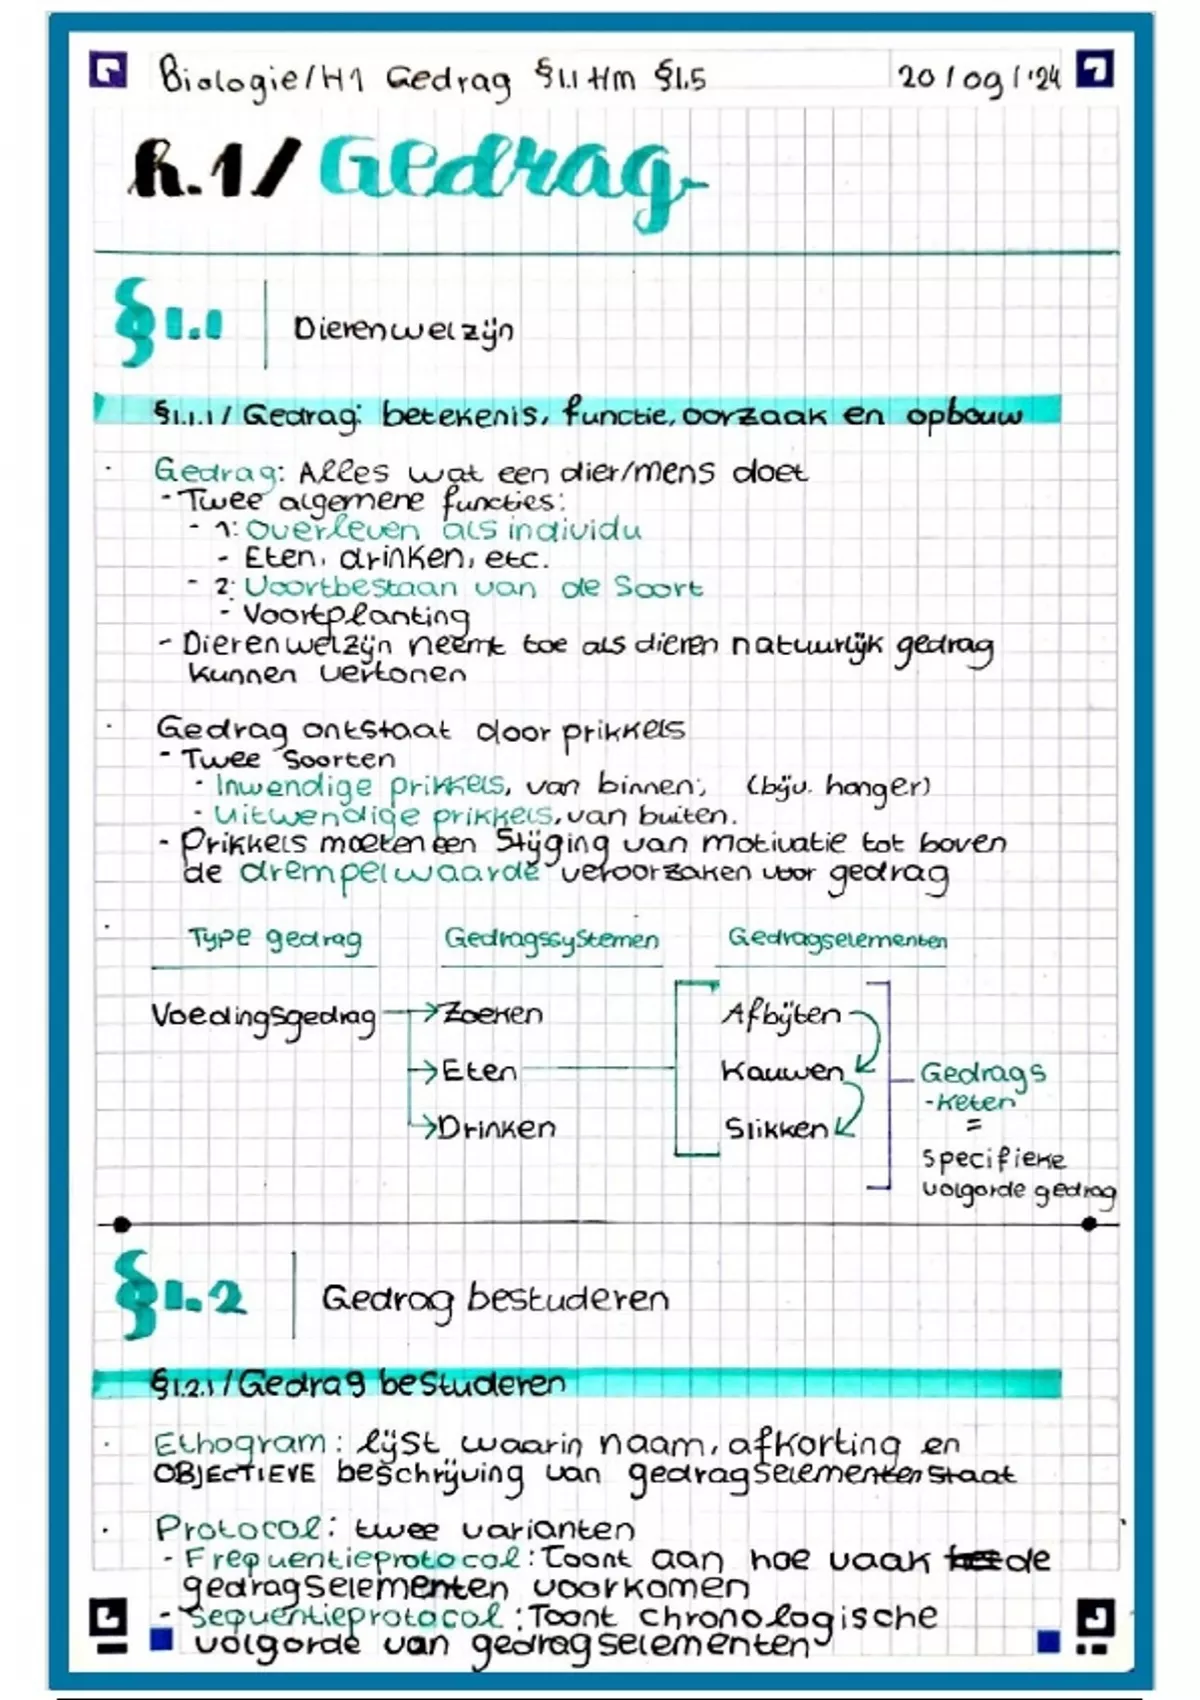 Biologie/H1 Gedrag §1.1 t/m §1.5 20/09/'24
h.1/Gedrag
§1.1 Dierenwelzijn
§1.1.1/Gedrag: betekenis, functie, oorzaak en opbouw
· Gedrag: Alles wat een dier/mens doet
- Twee algemene functies:
- 1: Overleven als individu
- Eten, drinken, etc.
- 2: Voortbestaan van de Soort
- Voortplanting
- Dierenwelzijn neemt toe als dieren natuurlijk gedrag
kunnen vertonen
· Gedrag ontstaat door prikkels
- Twee Soorten
- Inwendige prikkels, van binnen; (bijv. honger)
- Uitwendige prikkels, van buiten.
- Prikkels moeten een Stijging van motivatie tot boven
de drempelwaarde veroorzaken voor gedrag
· Type gedrag Gedragssystemen Gedragselementen
Voedingsgedrag → Zoeken Afbijten
→ Eten Kauwen Gedrags
-keten
→ Drinken Slikken =
specifieke
volgorde gedrag
§1.2 Gedrag bestuderen
§1.2.1/Gedrag bestuderen
· Ethogram: lijst waarin naam, afkorting en
OBJECTIEVE beschrijving van gedragselementen staat
· Protocol: twee varianten
- Frequentieprotocol: Toont aan hoe vaak de
gedragselementen voorkomen
- Sequentieprotocol: Toont chronologische
volgorde van gedragselementen